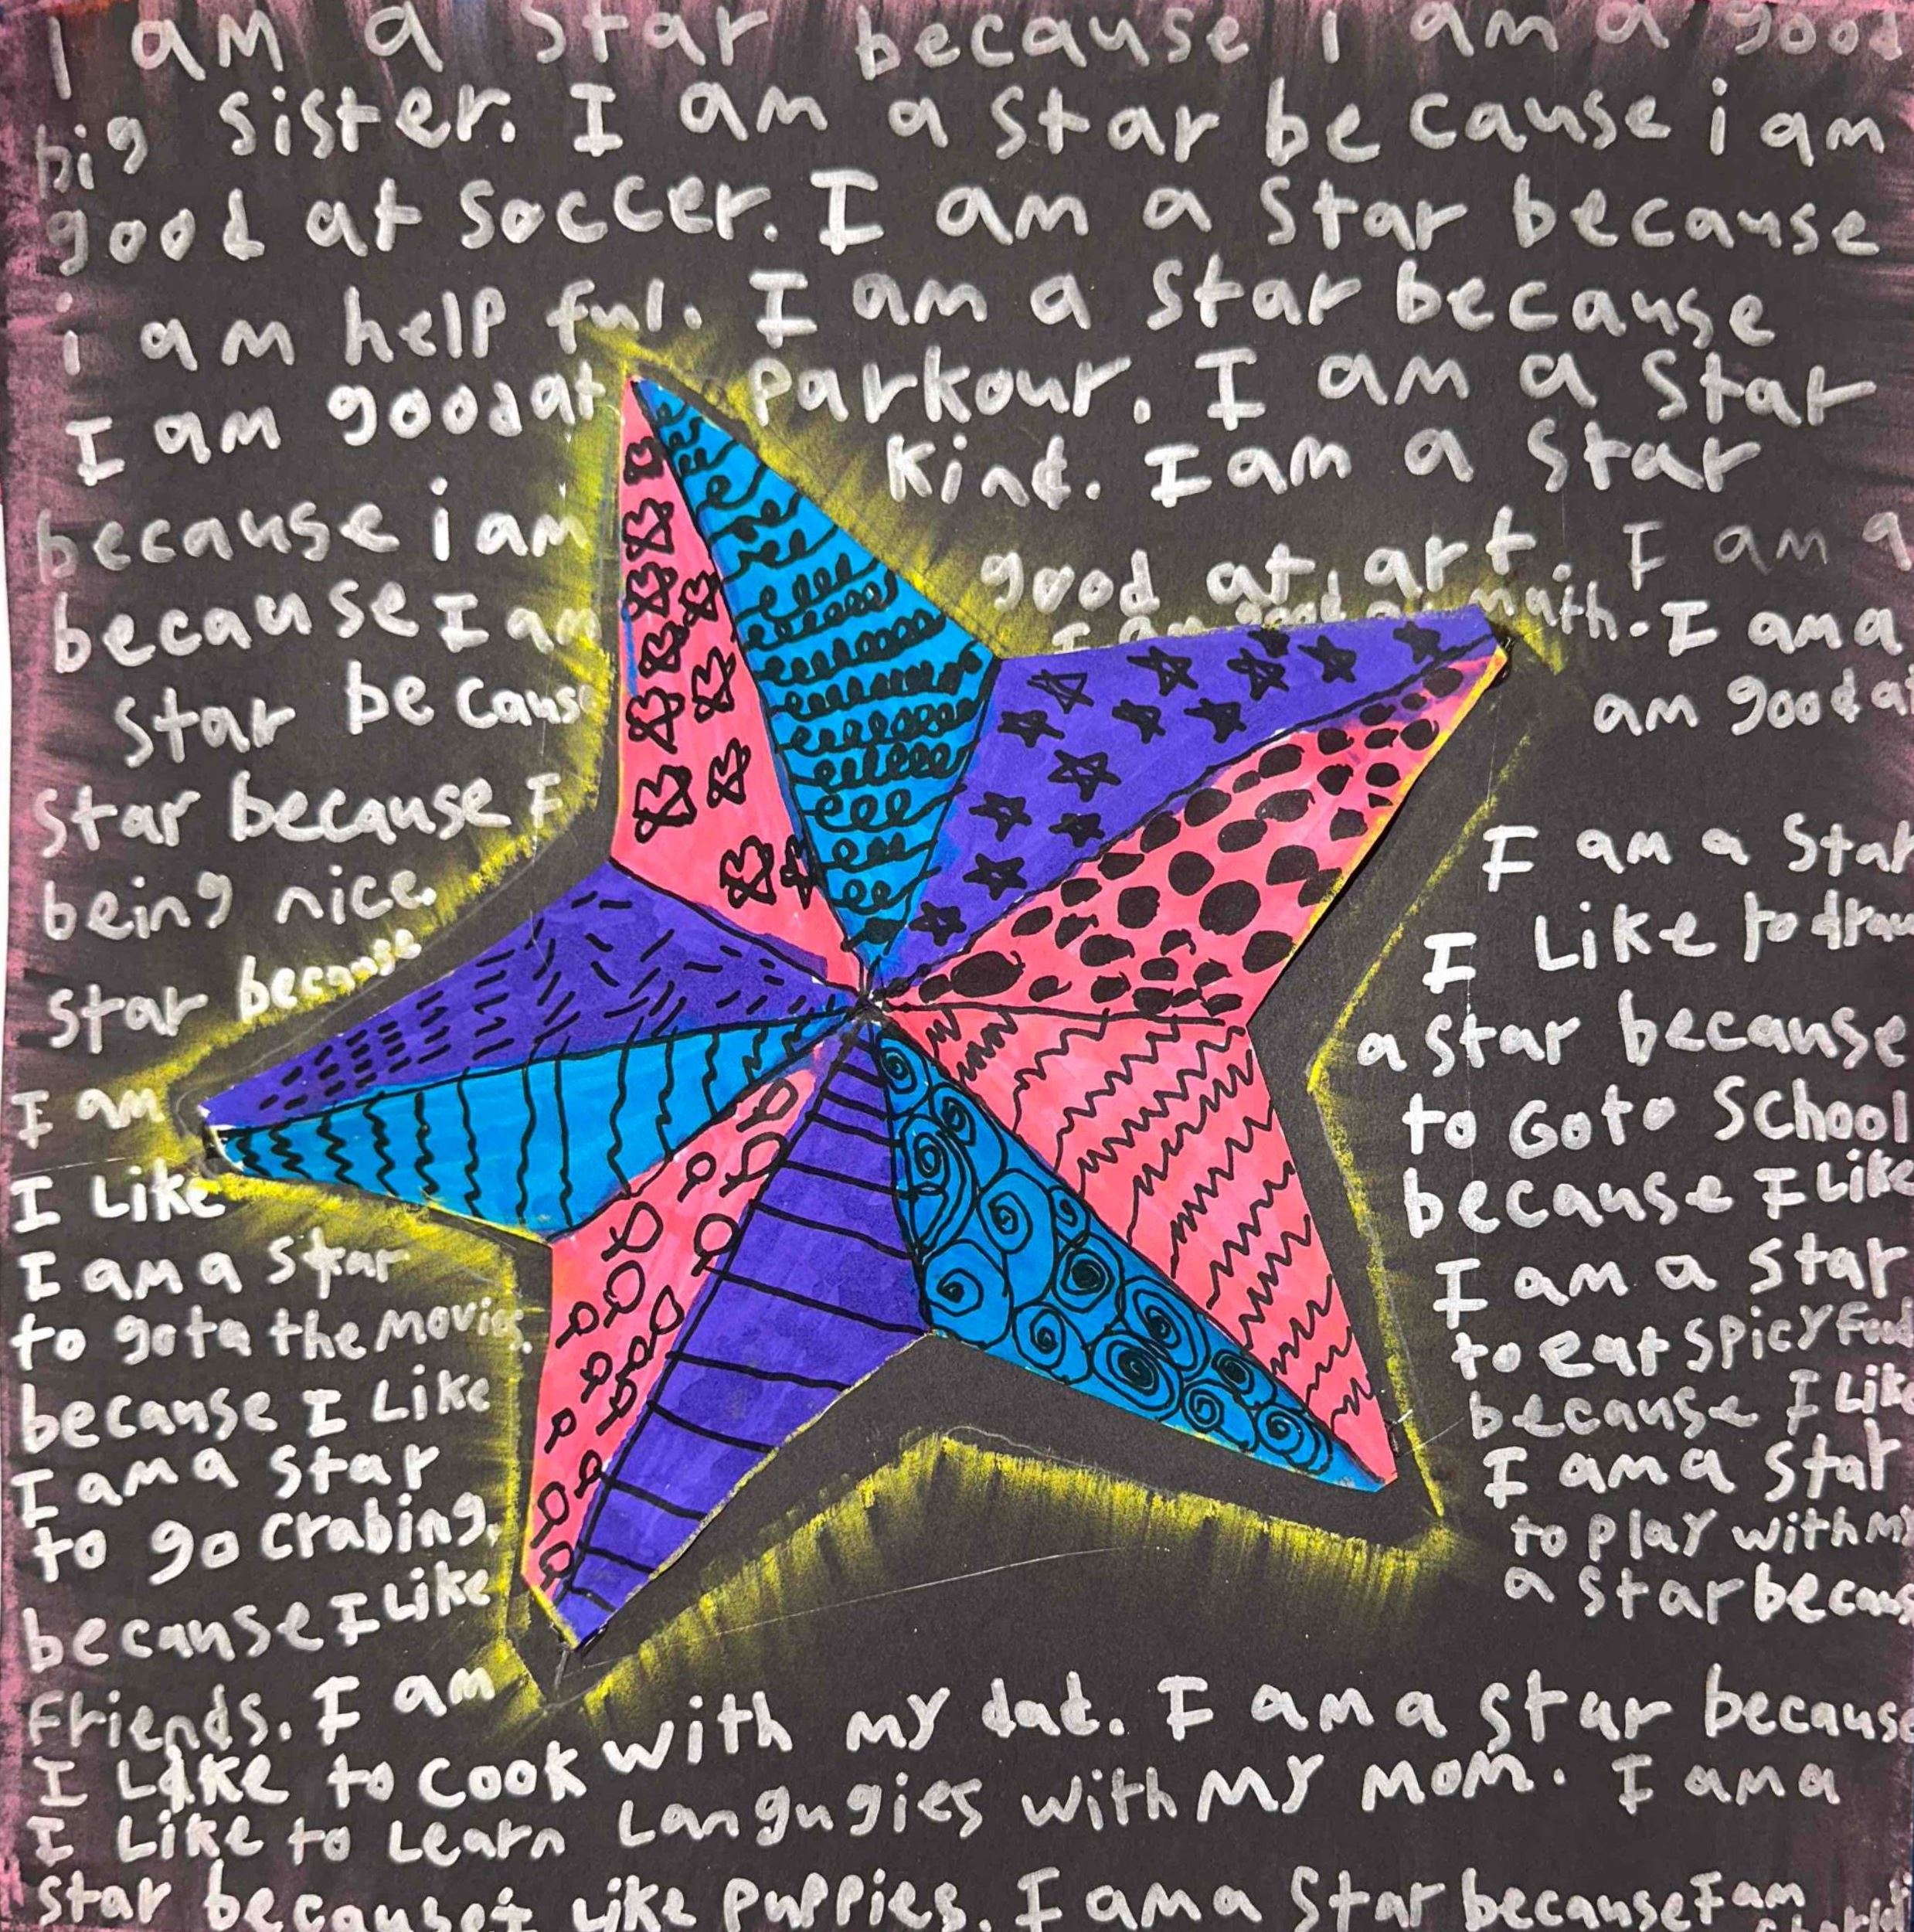 I am a star because i am a good
big sister. I am a star be cause i am
good at soccer. I am a star because
i am help ful. I am a star because
I am good at parkour. I am a star
because i am kind. I am a star
because I am good at art. I am a
star be caus I am good at math. I am a
star because I am good at
being nice. I am a star
star because I Like to draw
I am a star because
I Like to Go to School
I am a star because I Like
to go to the movies. I am a star
because I Like to eat spicy Food
I am a star because I Like
to go crabing. I am a star
because I Like to play with my
Friends. I am a star becaus
I Like to cook with my dad. I am a star because
I Like to Learn Langugies with my mom. I am a
star because i Like puppies. I am a star because I am